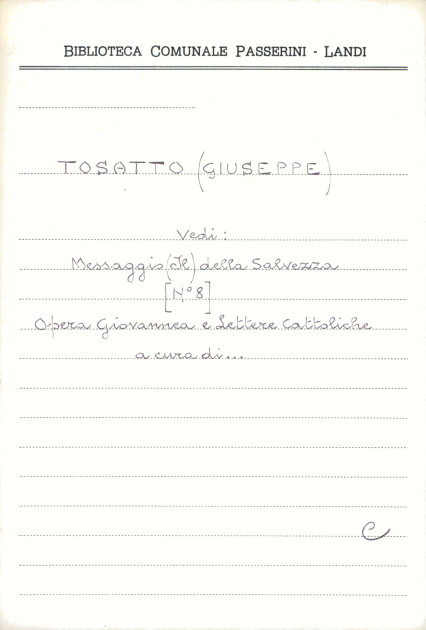 BIBLIOTECA COMUNALE PASSERINI - LANDI
TOSATTO (GIUSEPPE)
Vedi:
Messaggio (Il) della Salvezza
[N° 8]
Opera Giovannea e Lettere Cattoliche
a cura di...
C